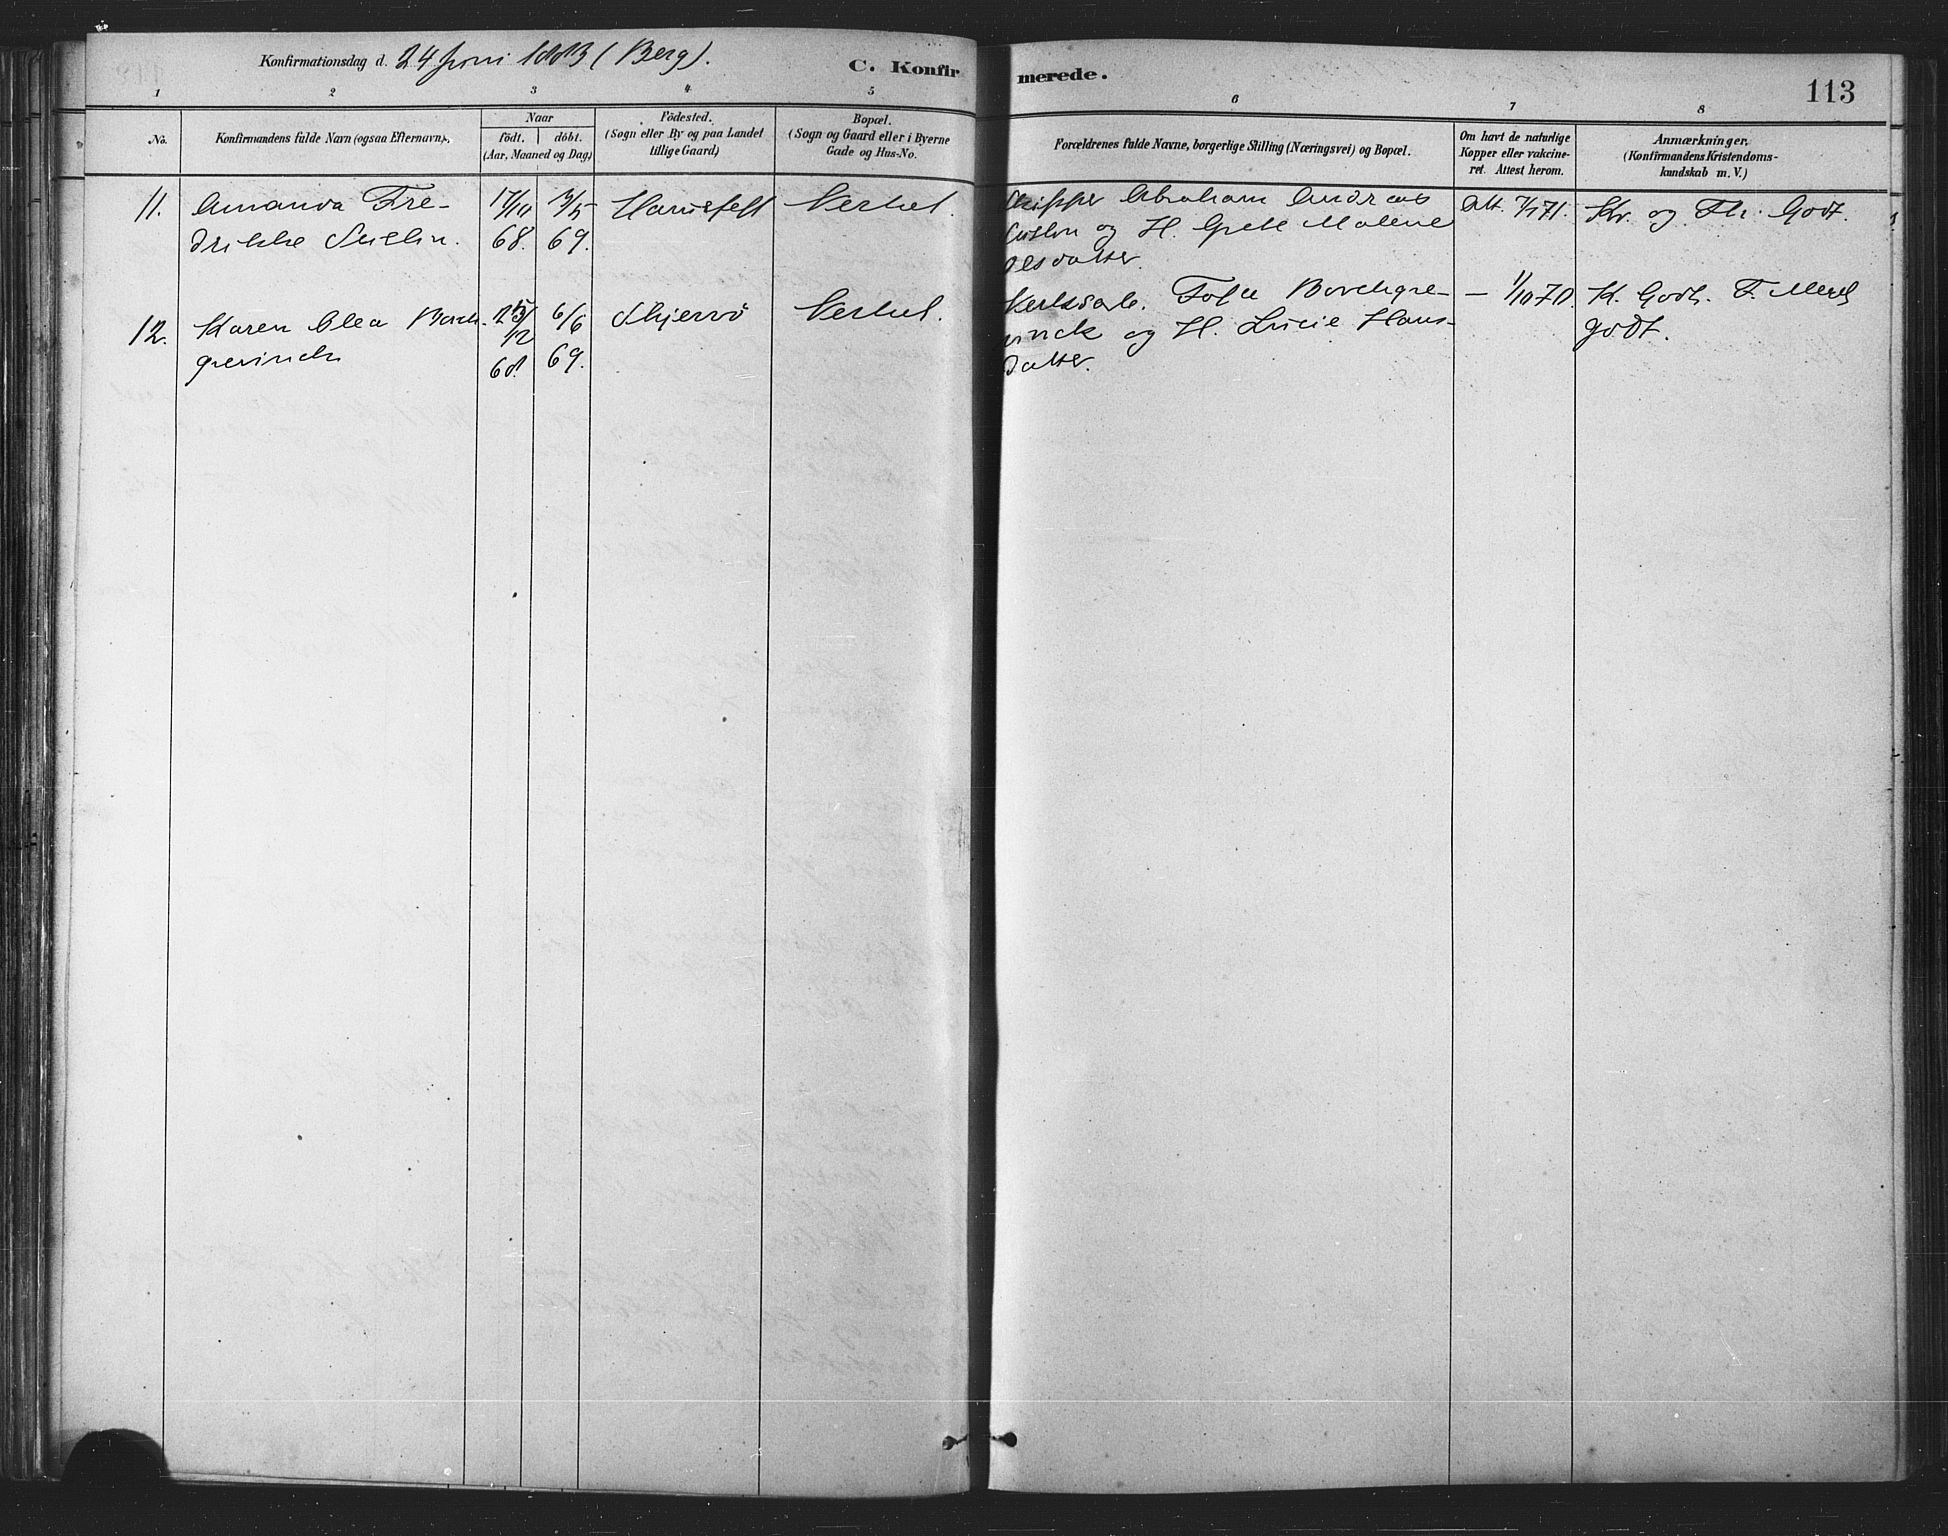 Konfirmationsdag d. 24 Juni 1883 (Berg).
C. Konfirmerede.
113
1 2 3 4 5 6 7 8
No.
Konfirmandens fulde Navn (ogsaa Efternavn).
Naar
födt. döbt.
(Aar, Maaned og Dag)
Födested.
(Sogn eller By og paa Landet
tillige Gaard)
Bopæl.
(Sogn og Gaard eller i Byerne
Gade og Hus-No.
Forældrenes fulde Navne, borgerlige Stilling (Næringsvei) og Bopæl.
Om havt de naturlige
Kopper eller vakcine-
ret. Attest herom.
Anmærkninger.
(Konfirmandens Kristendoms-
kundskab m. V.)
11.
Amanda Fre-
drikke
17/10
68.
69.
Skipper Abraham Andreas
og H. Grete Malene
datter.
Att. 7/1 71.
Kr. og Fl. Godt.
12.
Karen Olea Borch-
grevinck
12
68.
6/6
69.
Skjervö
Borchgre-
vinck og H. Lucie Hans-
datter.
— 1/10 70.
K. Godt. F. Meget
godt.